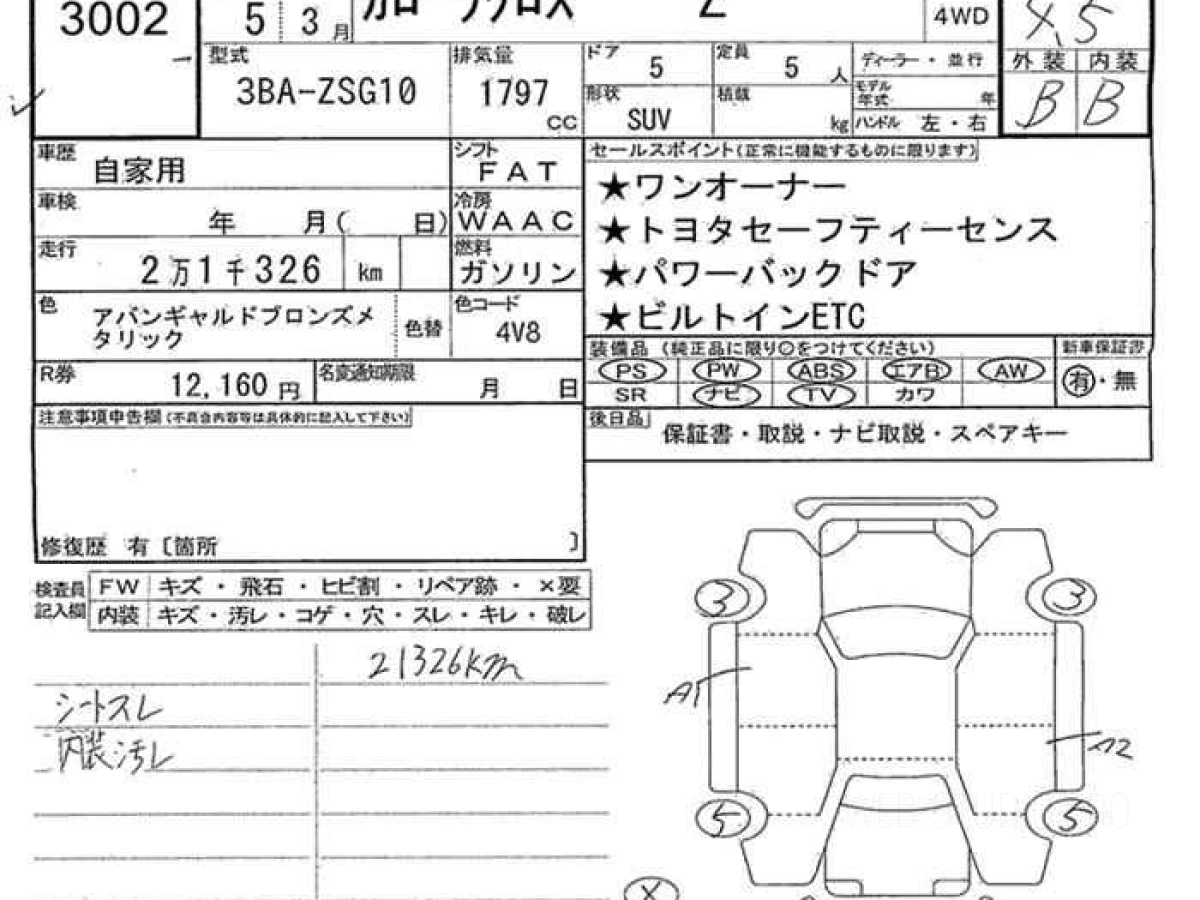 3002
5 3月
カローラクロス Z
4WD
4.5
型式
3BA-ZSG10
排気量
1797
CC
ドア
5
定員
5 人
ディーラー・並行
外装 内装
B B
形状
SUV
積載
kg
モデル年式 年
ハンドル 左・右
車歴
自家用
シフト
FAT
セールスポイント(正常に機能するものに限ります)
★ワンオーナー
★トヨタセーフティーセンス
★パワーバックドア
★ビルトインETC
車検
年 月( 日)
冷房
WAAC
走行
2万1千326 km
燃料
ガソリン
色
アバンギャルドブロンズメ
タリック
色替
色コード
4V8
装備品 (純正品に限り○をつけてください)
新車保証書
PS PW ABS エアB AW
有・無
SR ナビ TV カワ
R券
12,160 円
名変通知期限
月 日
後日品
保証書・取説・ナビ取説・スペアキー
注意事項申告欄(不具合内容等は具体的に記入して下さい)
修復歴 有〔箇所 〕
検査員
記入欄
FW キズ・飛石・ヒビ割・リペア跡・×要
内装 キズ・汚レ・コゲ・穴・スレ・キレ・破レ
21326km
シートスレ
内装汚レ
3 3
A1
A2
5 5
X